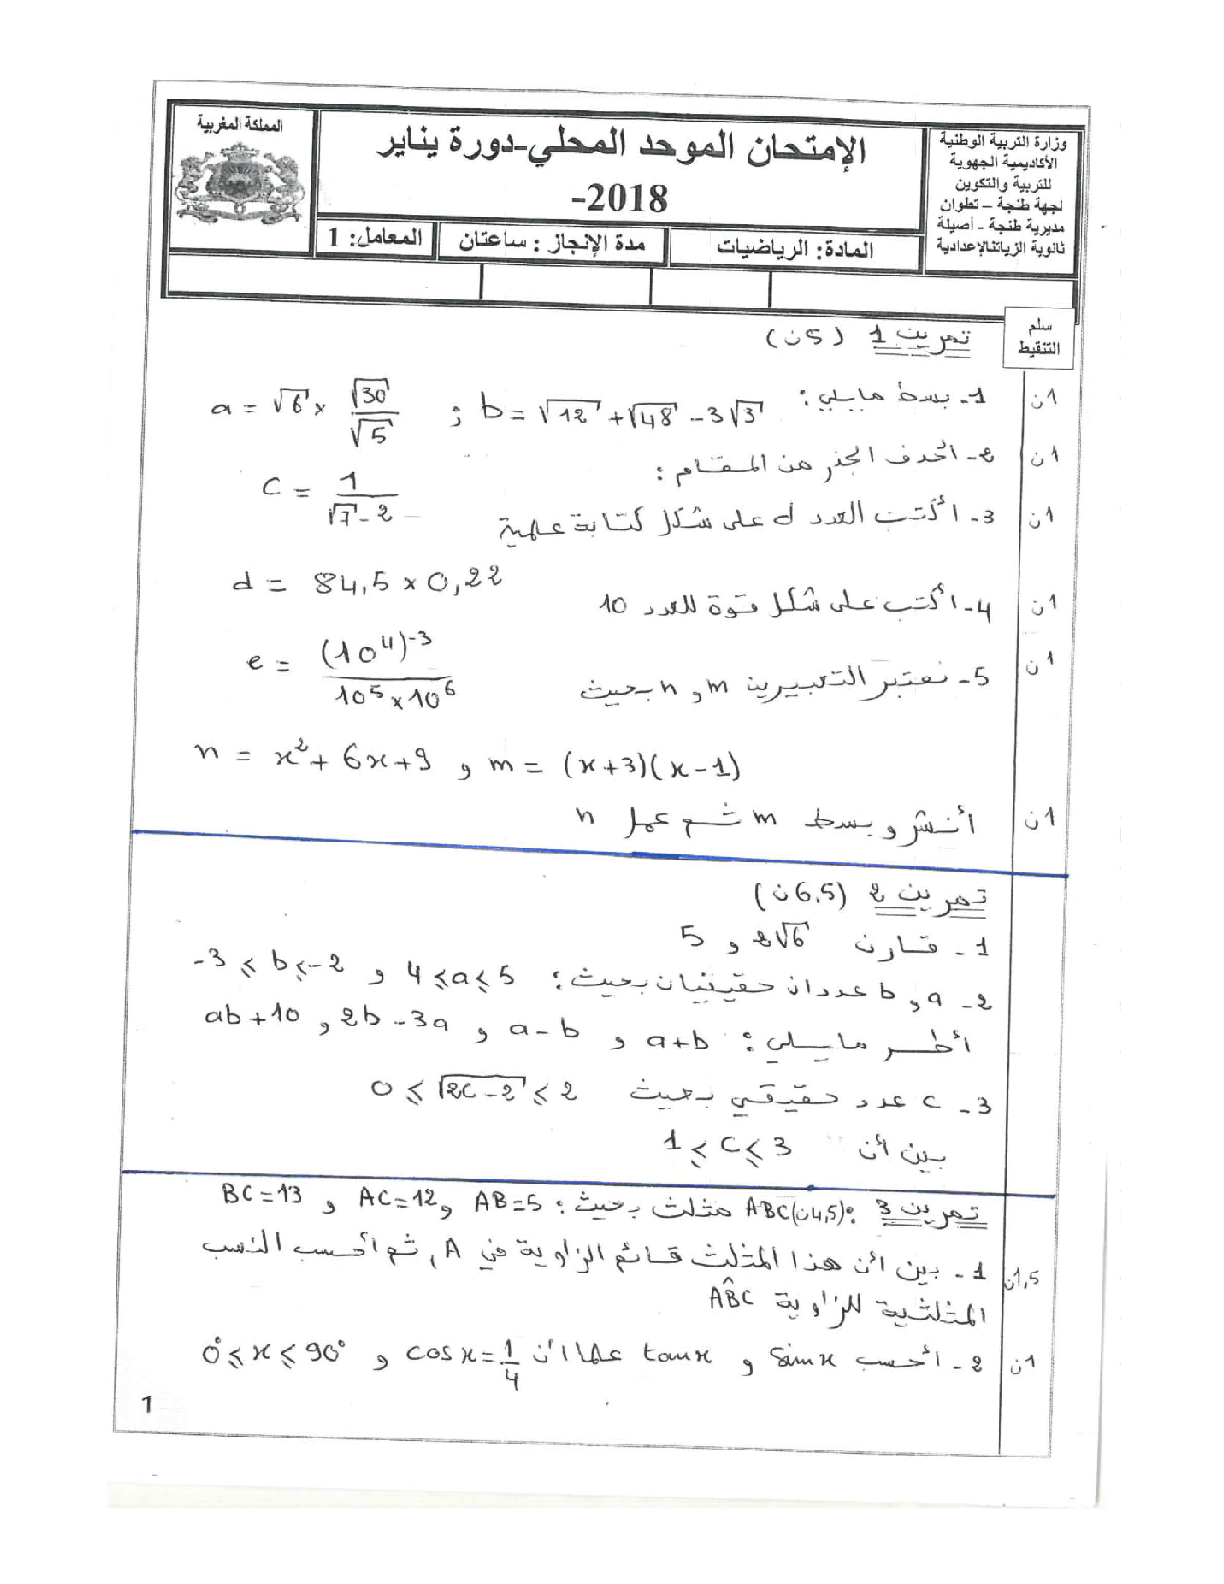 وزارة التربية الوطنية
الأكاديمية الجهوية
للتربية والتكوين
لجهة طنجة – تطوان
مديرية طنجة - أصيلة
ثانوية الزياتنالإعدادية
الإمتحان الموحد المحلي-دورة يناير
-2018
المملكة المغربية
المادة: الرياضيات
مدة الإنجاز : ساعتان
المعامل: 1
سلم
التنقيط
تمرين 1 (5ن)
1ن
1- بسط مايلي: a = √6 × √30/√5 ; b = √12 + √48 - 3√3
1ن
2- احذف الجذر من المقام :
c = 1/(√7 - 2)
1ن
3- أكتب العدد d على شكل كتابة علمية
d = 84,5 × 0,22
1ن
4- أكتب على شكل قوة للعدد 10
e = (10⁴)⁻³/(10⁵ × 10⁶)
1ن
5- نعتبر التعبيرين m و n بحيث
n = x² + 6x + 9 و m = (x+3)(x-1)
1ن
أنشر وبسط m ثم عمل n
تمرين 2 (6,5ن)
1- قارن 2√6 و 5
2- a و b عددان حقيقيان بحيث: 4 ≤ a ≤ 5 و -3 ≤ b ≤ -2
أطر مايلي: a+b و a-b و 2b-3a و ab+10
3- c عدد حقيقي بحيث 0 ≤ √(2c-2) ≤ 2
بين أن 1 ≤ c ≤ 3
تمرين 3 (4,5ن): ABC مثلث بحيث: AB=5 و AC=12 و BC=13
1,5ن
1- بين أن هذا المثلث قائم الزاوية في A، ثم أحسب النسب
المثلثية للزاوية AB̂C
1ن
2- أحسب sinx و tanx علما أن cosx = 1/4 و 0° ≤ x ≤ 90°
1